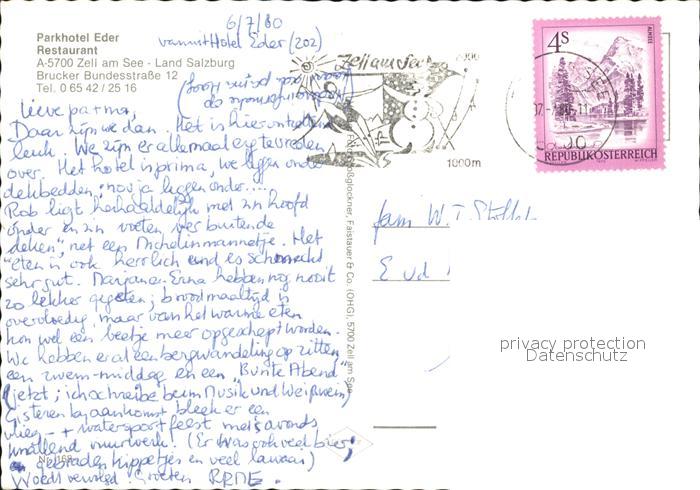 6/7/80
Parkhotel Eder
vanuit Hotel Eder (202)
Restaurant
A-5700 Zell am See - Land Salzburg
Brucker Bundesstraße 12
Tel. 0 65 42 / 25 16
Zell am See
1000m
4S
ALMSEE
REPUBLIK ÖSTERREICH
Lieve pa + ma,
Daar zijn we dan. Het is hier ontzettend
leuk. We zijn er allemaal erg tevreden
over. Het hotel is prima, we liggen onder
dekbedden; nou ja liggen onder....
Rob ligt herhaaldelijk met z'n hoofd
onder en z'n voeten ver buiten de
deken", net een Michelinmannetje. Het
eten is ook heerlijk en es schmeckt
sehr gut. Marjan + Erna hebben nog nooit
zo lekker gegeten; broodmaaltijd is
overvloedig, maar van het warme eten
kon wel een beetje meer opgeschept worden.
We hebben er al een bergwandeling op zitten
een zwem-middag en een "Bunte Abend"
(jetzt; ich schreibe beim Musik und Weißwein)
Gisteren bij aankomst bleek er een
vlieg- + watersportfeest met 's avonds
knallend vuurwerk. (Er was ook veel bier,
en gebraden kippetjes en veel lawaai)
Wordt vervolgd. Groeten RRME.
fam W. T.
E v d
Großglockner, Falstauer & Co. (OHG), 5700 Zell am See
privacy protection
Datenschutz